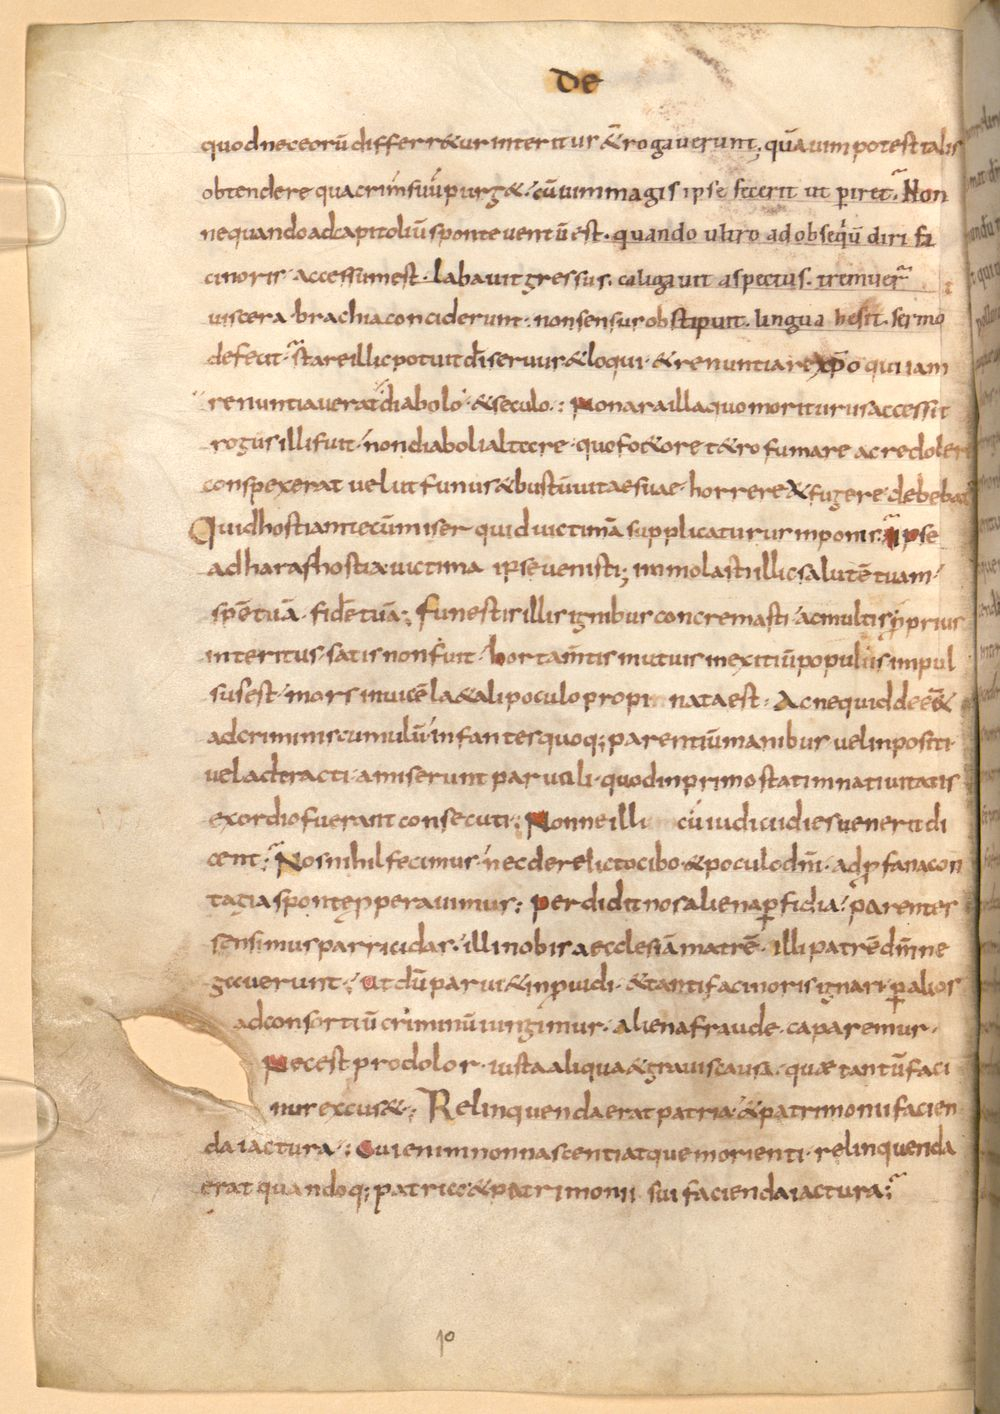 De
quod ne ceorū differr&ur interitus &rogauerunt. quā uim potest talis
obtendere qua crimen suū purg&. cū uim magis ipse fecerit ut periret. Non
ne quando ad capitoliū sponte uentū est. quando ultro ad obsequiū diri fa
cinoris accessum est. labauit gressus. caligauit aspectus. tremuer
uiscera. brachia conciderunt. non sensus obstipuit. lingua hesit. sermo
defecit. stare illic potuit dei seruus & loqui. & renuntiare xpo qui iam
renuntiauerat diabolo. & seculo. Non ara illa quo moriturus accessit
rogus illi fuit. non diaboli altare. quo foetore t&ro fumare ac redolere
conspexerat uelut funus & bustū uitae suae. horrere & fugere debebat
Quid hostiam tecū miser quid uictimā supplicaturus inponis. ipse
ad haras hostia uictima ipse uenisti; immolasti illic salutē tuam.
spē tuā. fidē tuā; funestis illis ignibus concremasti. ac multis pprius
interitus. satis non fuit. hortamtis mutuis in exitiū populus inpul
sus est. mors inuicē l&ali poculo propi nata est. Ac ne quid dee&
ad criminis cumulū infantes quoq; parentiū manibus uel inpositi
uel adtracti. amiserunt paruuli. quod in primo statim natiuitatis
exordio fuerant consecuti. Nonne illi cū iudicii dies uenerit di
cent; Nos nihil fecimus. nec derelicto cibo & poculo dni. ad pfana con
tagia sponte pperauimus; perdidit nos aliena pfidia. parentes
sensimus parricidas. illi nobis aecclesiā matrē. illi patrē dnm ne
gauerunt. ut dū parui & inpuidi. & tanti facinoris ignari. p alios
ad consortiū criminū iungimur. aliena fraude caparemur.
Nec est pro dolor. iusta aliqua & grauis causa. quae tantū faci
nus excus&. Relinquenda erat patria. & patrimonii facien
da iactura. Cui enim non nascenti atque morienti. relinquenda
erat quandoq; patria & patrimonii sui facienda iactura;
10